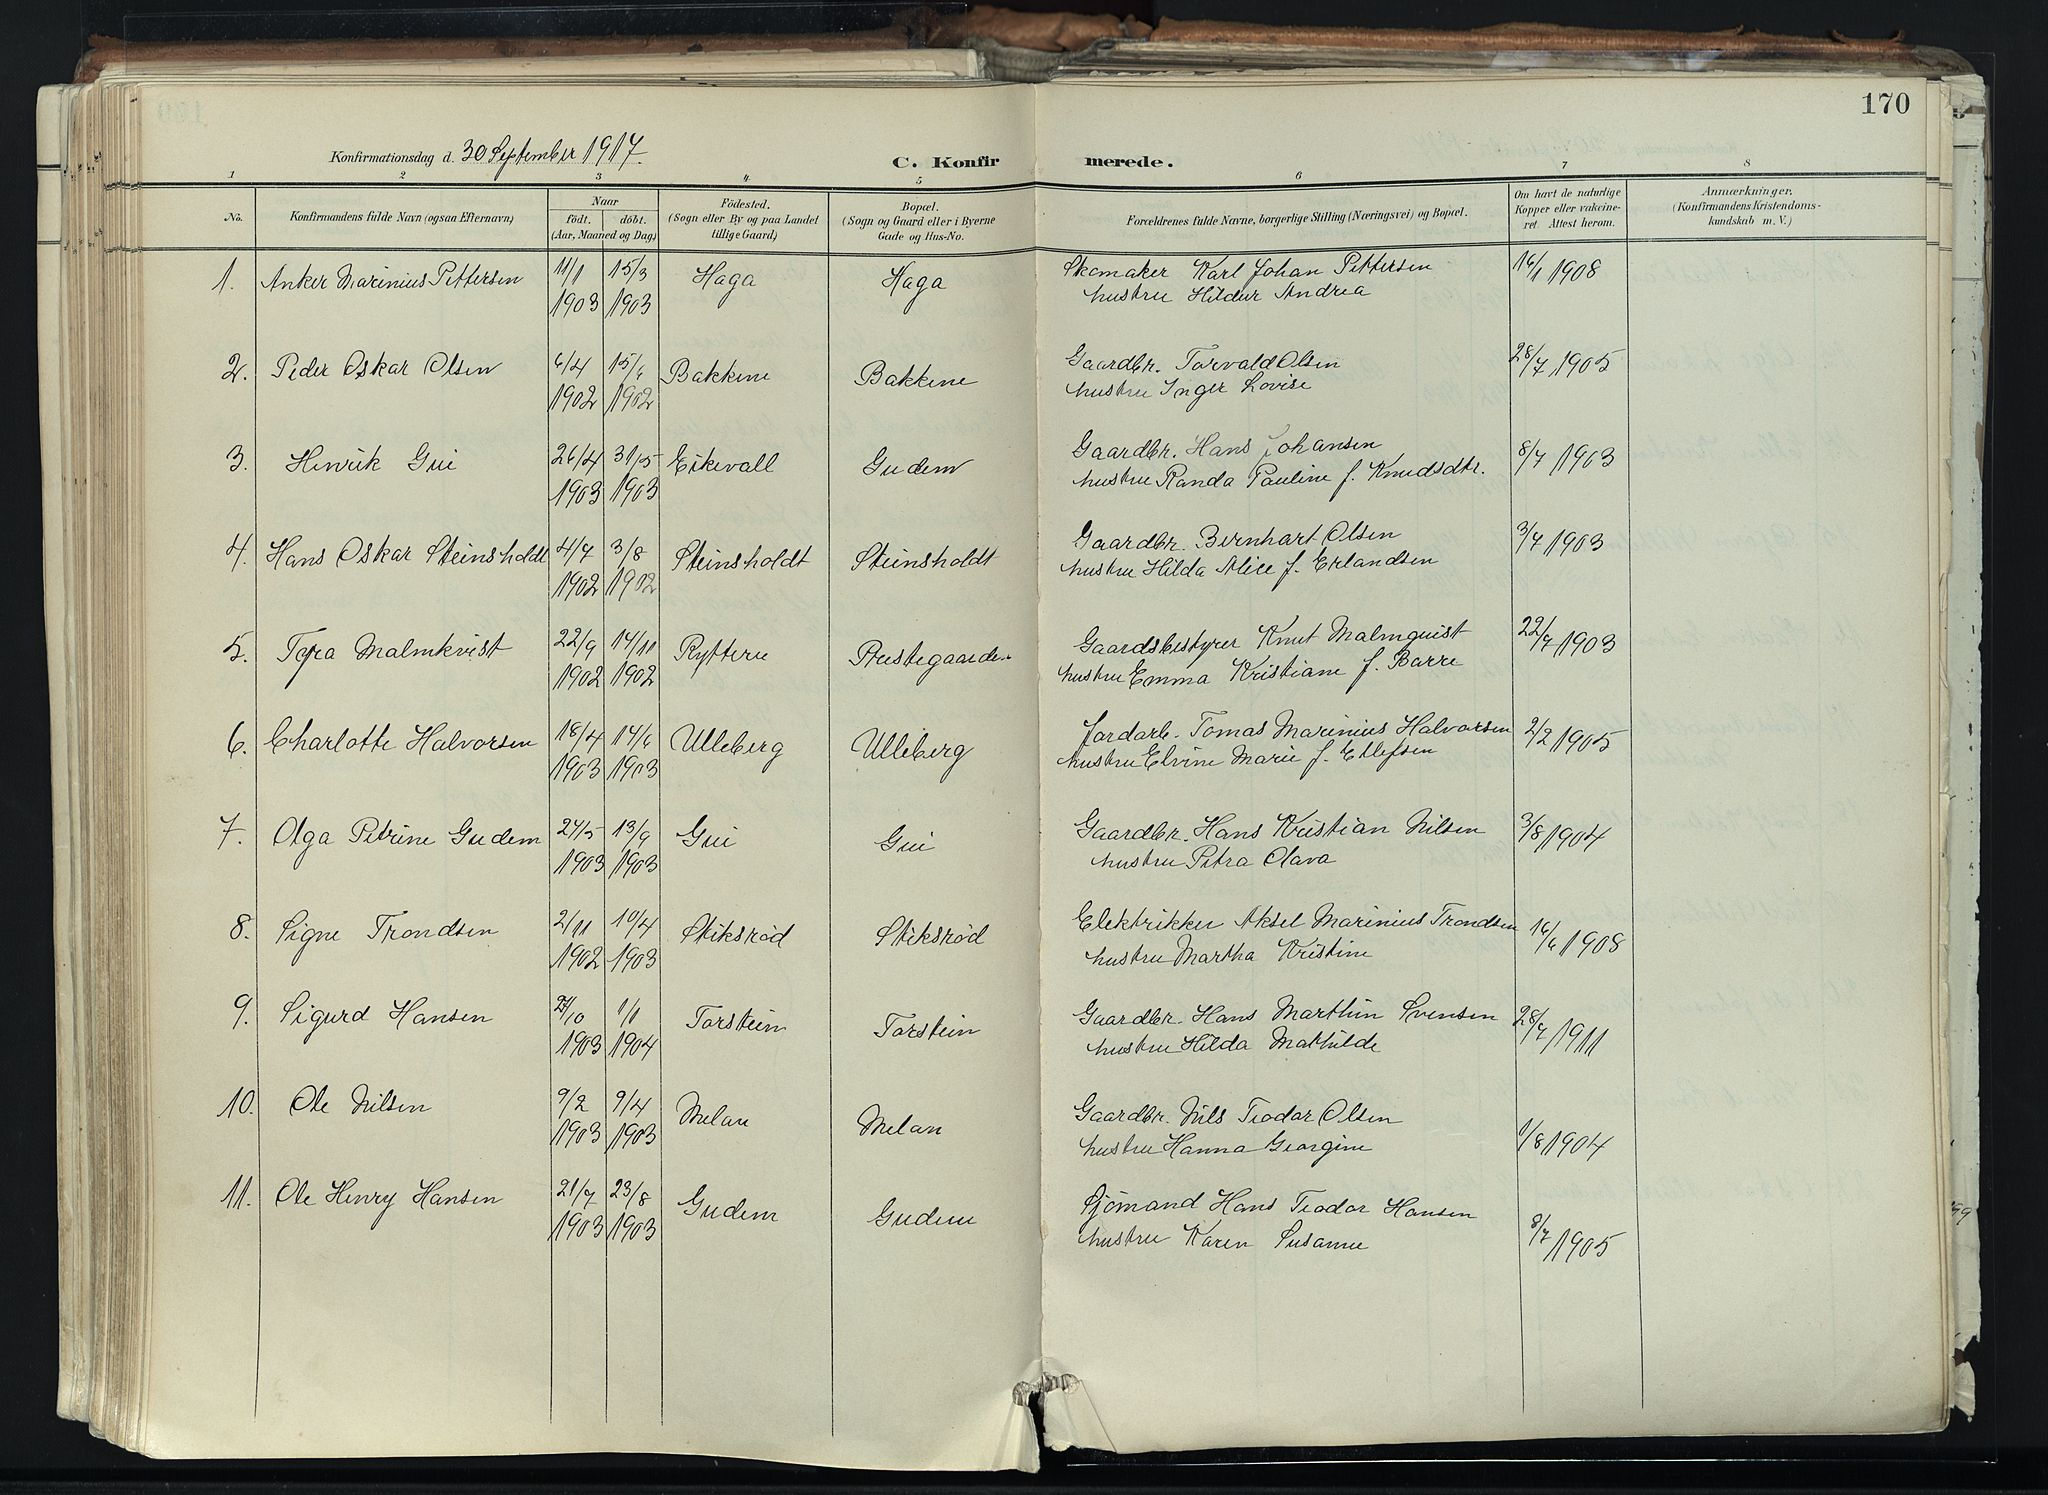 170
Konfirmationsdag d. 30 September 1917.
C. Konfirmerede.
1 2 3 4 5 6 7 8
No.
Konfirmandens fulde Navn (ogsaa Efternavn)
Naar
födt. döbt.
(Aar, Maaned og Dag)
Födested.
(Sogn eller By og paa Landet
tillige Gaard)
Bopæl.
(Sogn og Gaard eller i Byerne
Gade og Hus-No.
Forældrenes fulde Navne, borgerlige Stilling (Næringsvei) og Bopæl.
Om havt de naturlige
Kopper eller vakcine-
ret. Attest herom.
Anmærkninger.
(Konfirmandens Kristendoms-
kundskab m. V.)
1. Anker Marinius Pettersen 11/1 1903 15/3 1903 Haga Haga Skomaker Karl Johan Pettersen 16/1 1908
hustru Hildur Andrea
2. Peder Oskar Olsen 6/4 1902 15/6 1902 Bakkene Bakkene Gaardbr. Torvald Olsen 28/7 1905
hustru Inger Lovise
3. Henrik Gui 26/4 1903 31/5 1903 Eikevall Gudem Gaardbr. Hans Johansen 8/7 1903
hustru Randa Pauline f. Knudsdtr.
4. Hans Oskar Steinsholdt 4/7 1902 3/8 1902 Steinsholdt Steinsholdt Gaardbr. Bernhart Olsen 3/7 1903
hustru Hilda Alice f. Erlandsen
5. Tora Malmkvist 22/9 1902 14/11 1902 Ryttere Prestegaarden Gaardsbestyrer Knut Malmquist 22/7 1903
hustru Emma Kristiane f. Barre
6. Charlotte Halvorsen 18/4 1903 14/6 1903 Ulleberg Ulleberg Jordarb. Tomas Marinius Halvorsen 2/2 1905
hustru Elvine Marie f. Ellefsen
7. Olga Petrine Gudem 24/5 1903 13/9 1903 Gui Gui Gaardbr. Hans Kristian Nilsen 3/8 1904
hustru Petra Olava
8. Signe Trondsen 2/11 1902 10/4 1903 Stiksrød Stiksrød Elektriker Aksel Marinius Trondsen 16/6 1908
hustru Martha Kristine
9. Sigurd Hansen /10 1903 1/1 1904 Torstein Torstein Gaardbr. Hans Marthin Svensen 28/7 1911
hustru Hilda Mathilde
10. Ole Nilsen 9/2 1903 9/4 1903 Melan Melan Gaardbr. Nils Teodor Olsen 1/8 1904
hustru Hanna Georgine
11. Ole Henry Hansen 21/7 1903 23/8 1903 Gudem Gudem Sjömand Hans Teodor Hansen 8/7 1905
hustru Karen Susanne